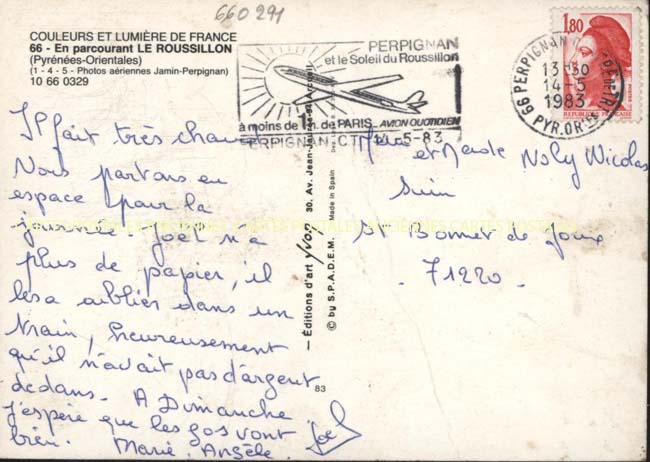 660291
COULEURS ET LUMIÈRE DE FRANCE
66 - En parcourant LE ROUSSILLON
(Pyrénées-Orientales)
(1 - 4 - 5 - Photos aériennes Jamin-Perpignan)
10 66 0329
PERPIGNAN
et le Soleil du Roussillon
à moins de 1h. de PARIS AVION QUOTIDIEN
PERPIGNAN CT 14-5-83
66 PERPIGNAN
13-30
14-5
1983
PYR. OR
1,80
REPUBLIQUE FRANÇAISE
Il fait très chaud
Nous partons en
espace pour la
journée Joël n'a
plus de papier, il
les a oublier dans un
train, heureusement
qu'il n'avait pas d'argent
dedans. A Dimanche
j'espère que les gos vont
bien. Marie. Angèle. Joël
et Noly Nicolas
Suin
St Bonnet de Joux
71220.
Éditions d'art yvon 30, Av. Jean-
© by S.P.A.D.E.M. Made in Spain
83